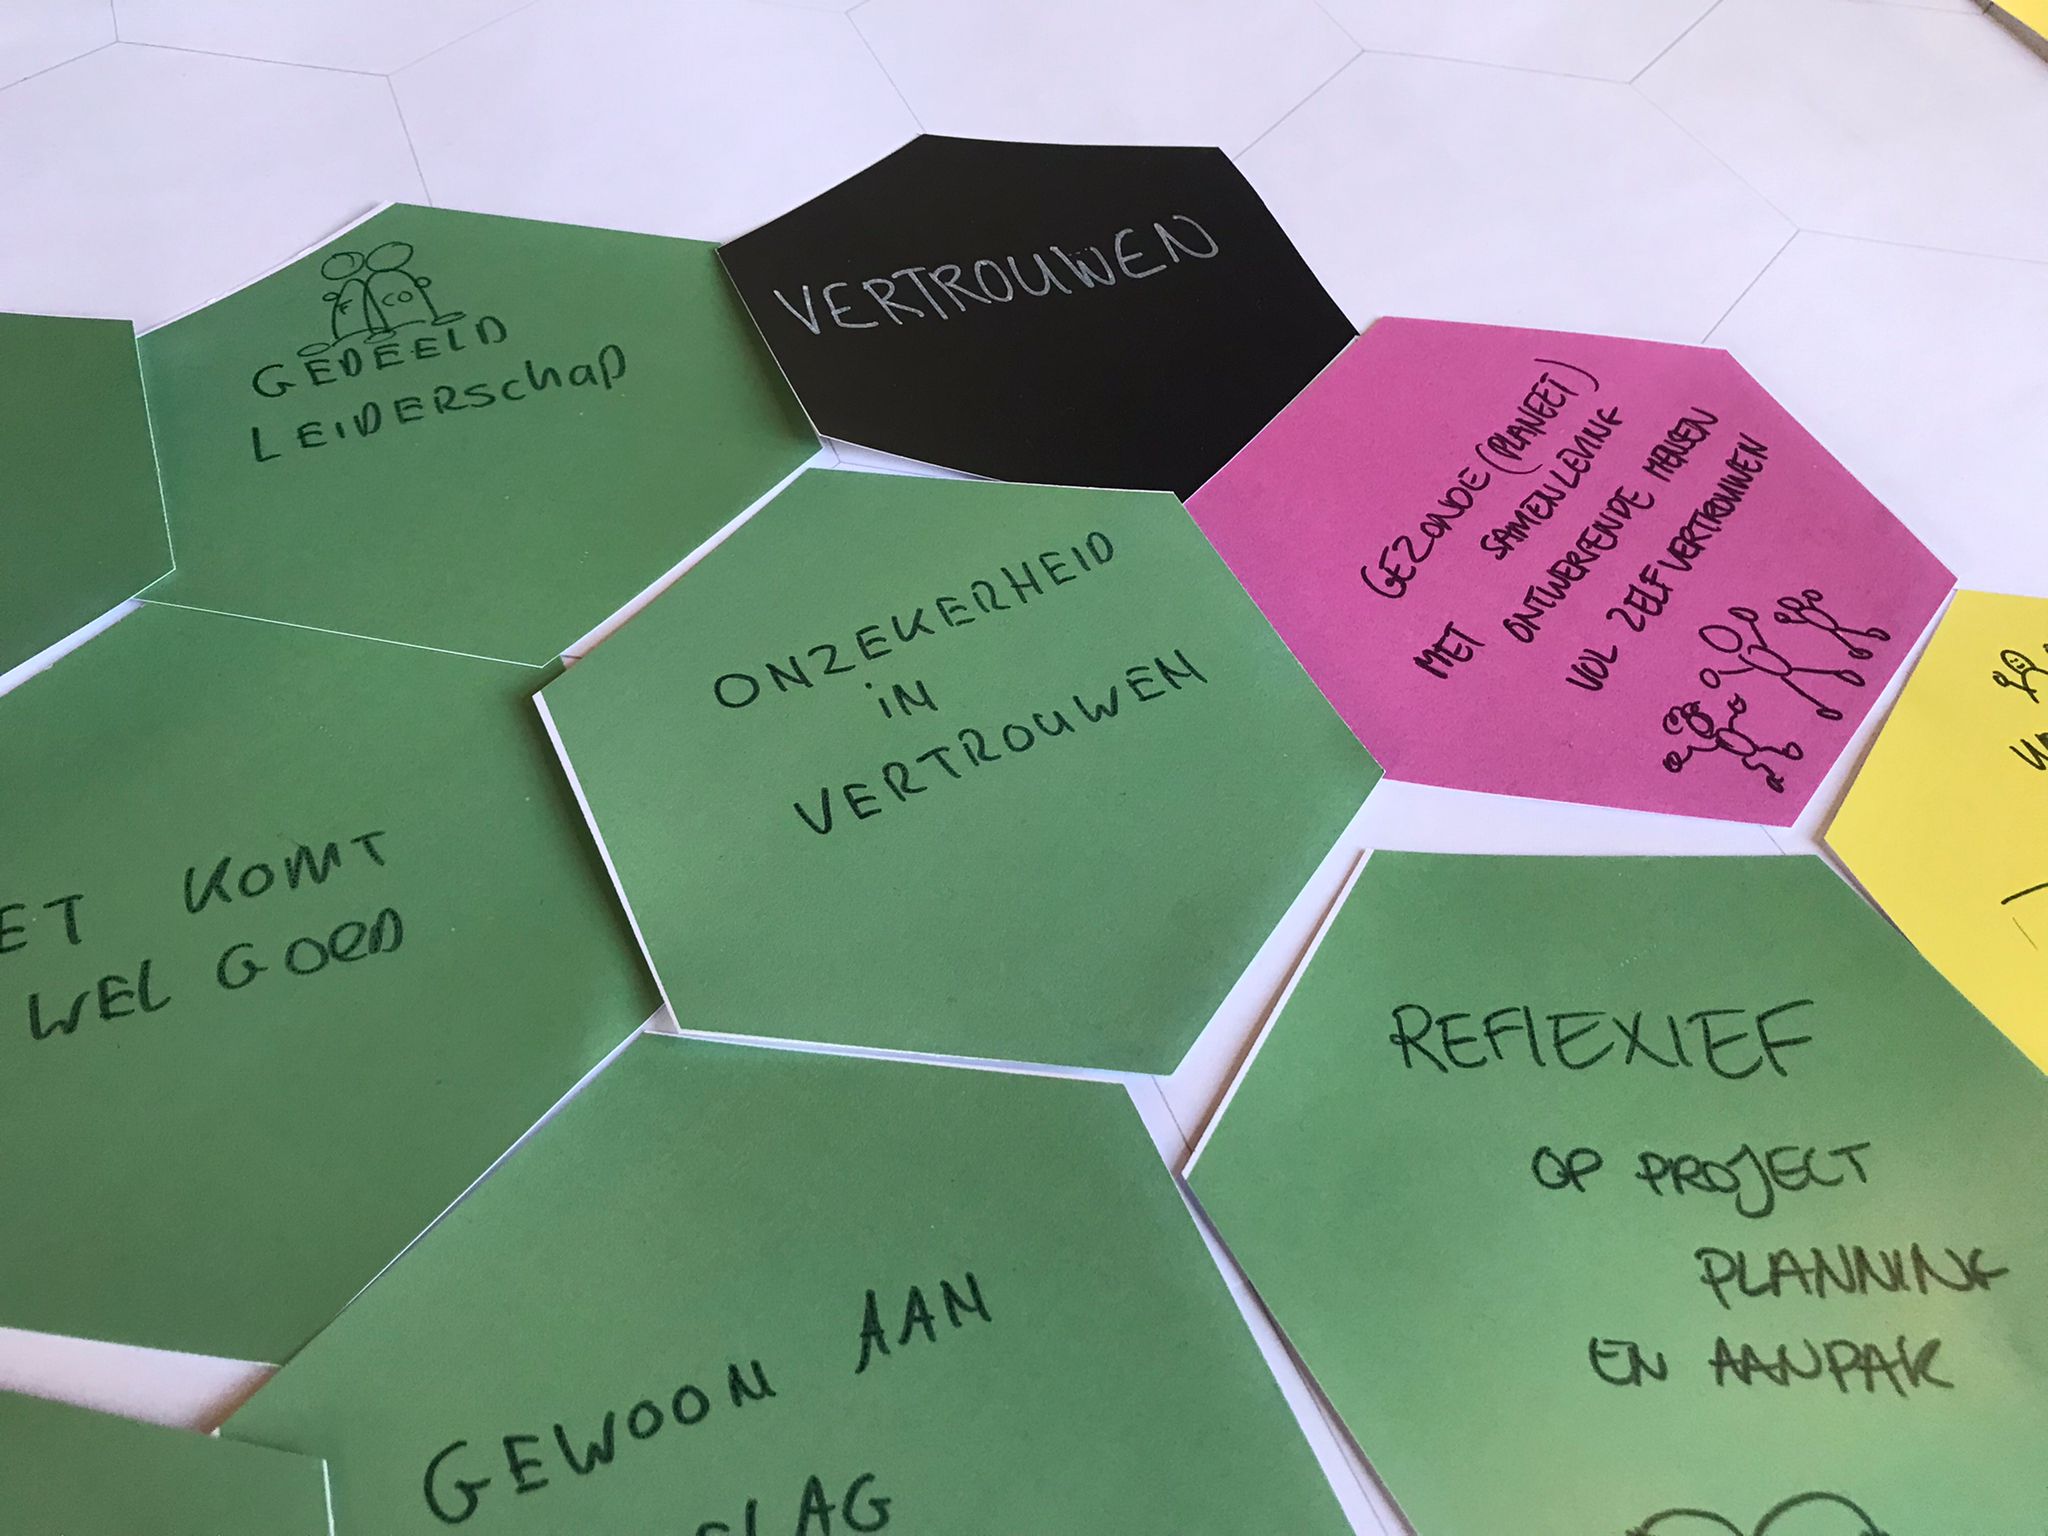 F CO
GEDEELD
LEIDERSchap
VERTROUWEN
GEZONDE (PLANEET)
SAMENLEVING
MET ONTWERPENDE MENSEN
VOL ZELFVERTROUWEN
ONZEKERHEID
iN
VERTROUWEN
ET KOMT
WEL GOED
REFLEXIEF
OP PROJECT
PLANNING
EN AANPAK
GEWOON AAN
SLAG